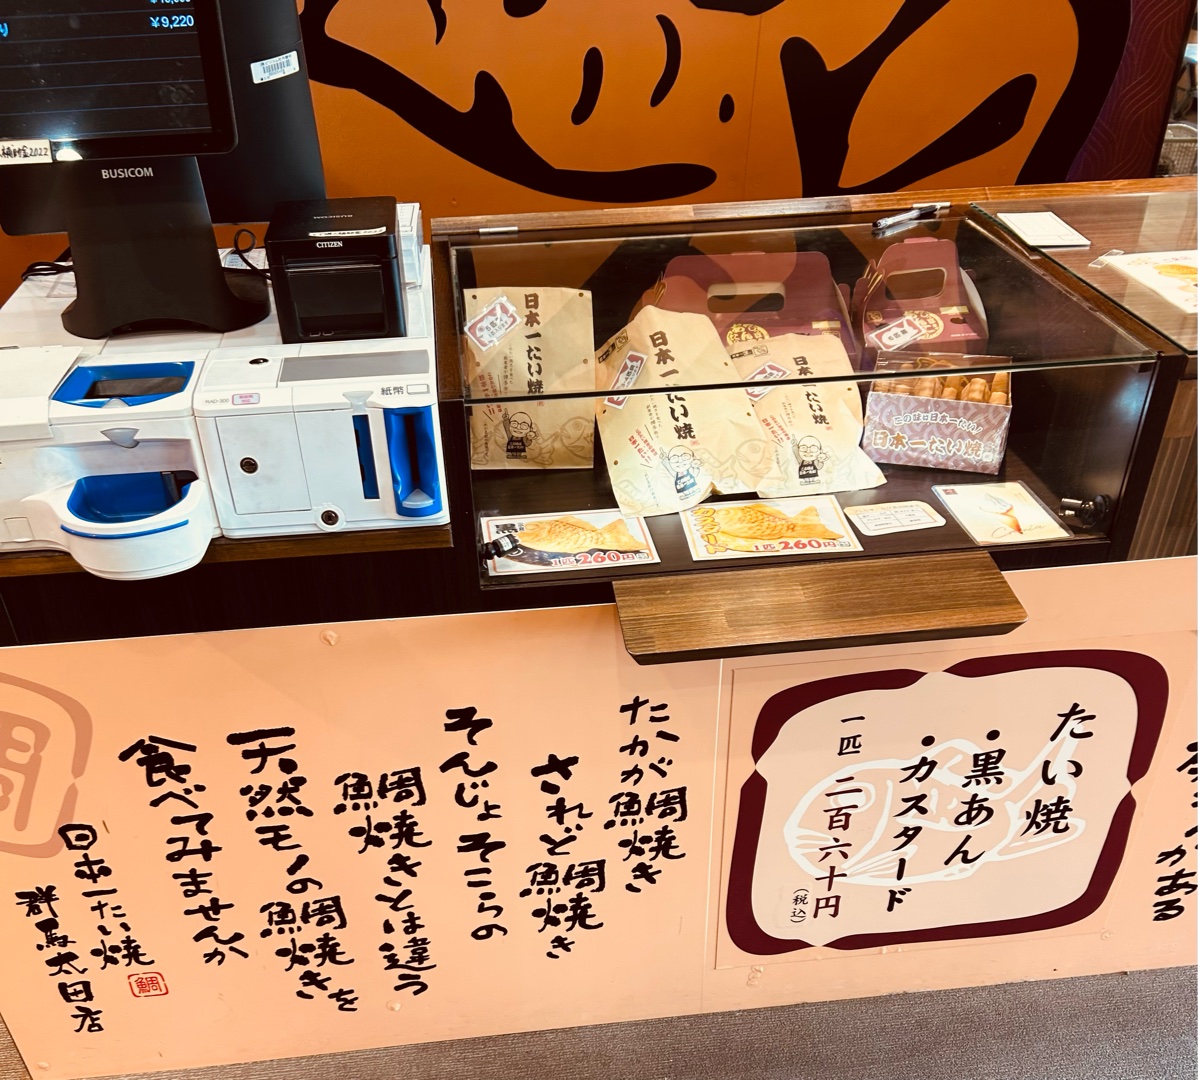 ¥9,220
補助金2022
BUSICOM
CITIZEN
RAD-300
紙幣
日本一たい焼
日本一たい焼
日本一たい焼
この味が日本一たい!
日本一たい焼
黒
1匹260円
カスタード
1匹260円
たい焼
・黒あん
・カスタード
一匹 二百六十円
(税込)
たかが鯛焼き
されど鯛焼き
そんじょそこらの
鯛焼きとは違う
天然モノの鯛焼きを
食べてみませんか
日本一たい焼
群馬太田店
鯛
がある